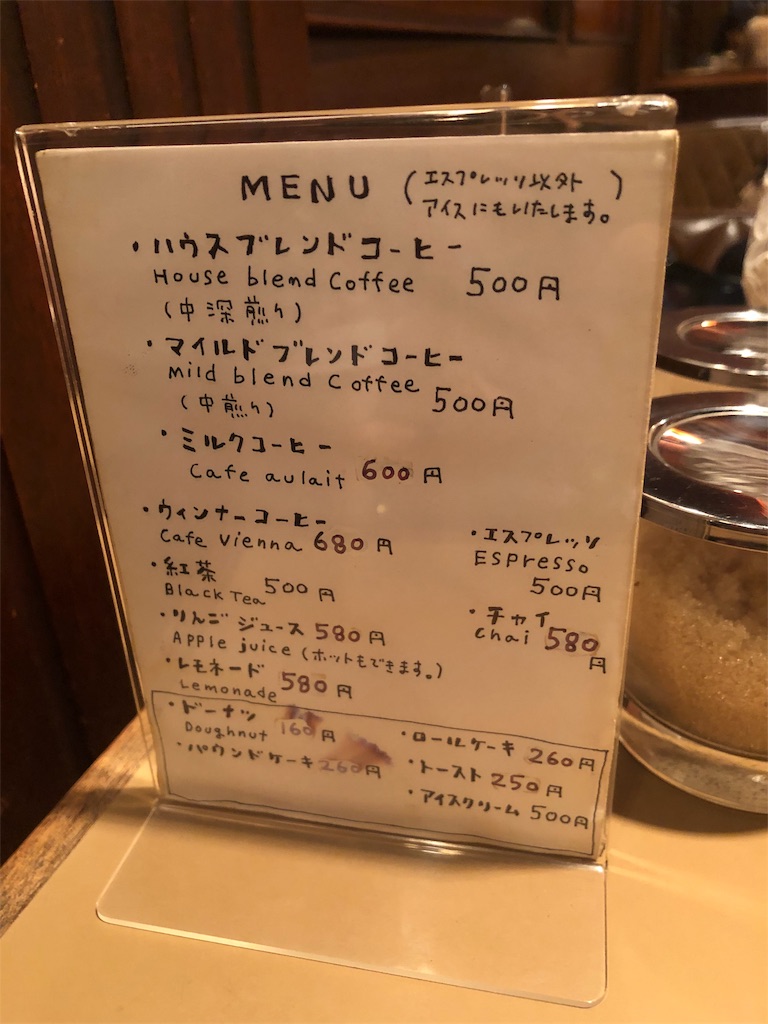 MENU (エスプレッソ以外
アイスにもいたします。)
・ハウスブレンドコーヒー
House blend Coffee 500円
(中深煎り)
・マイルドブレンドコーヒー
Mild blend Coffee 500円
(中煎り)
・ミルクコーヒー
Cafe aulait 600円
・ウィンナーコーヒー
Cafe Vienna 680円
・紅茶
Black Tea 500円
・りんごジュース 580円
Apple juice (ホットもできます。)
・レモネード
Lemonade 580円
・エスプレッソ
Espresso
500円
・チャイ
Chai 580円
・ドーナツ
Doughnut 160円
・パウンドケーキ 260円
・ロールケーキ 260円
・トースト 250円
・アイスクリーム 500円